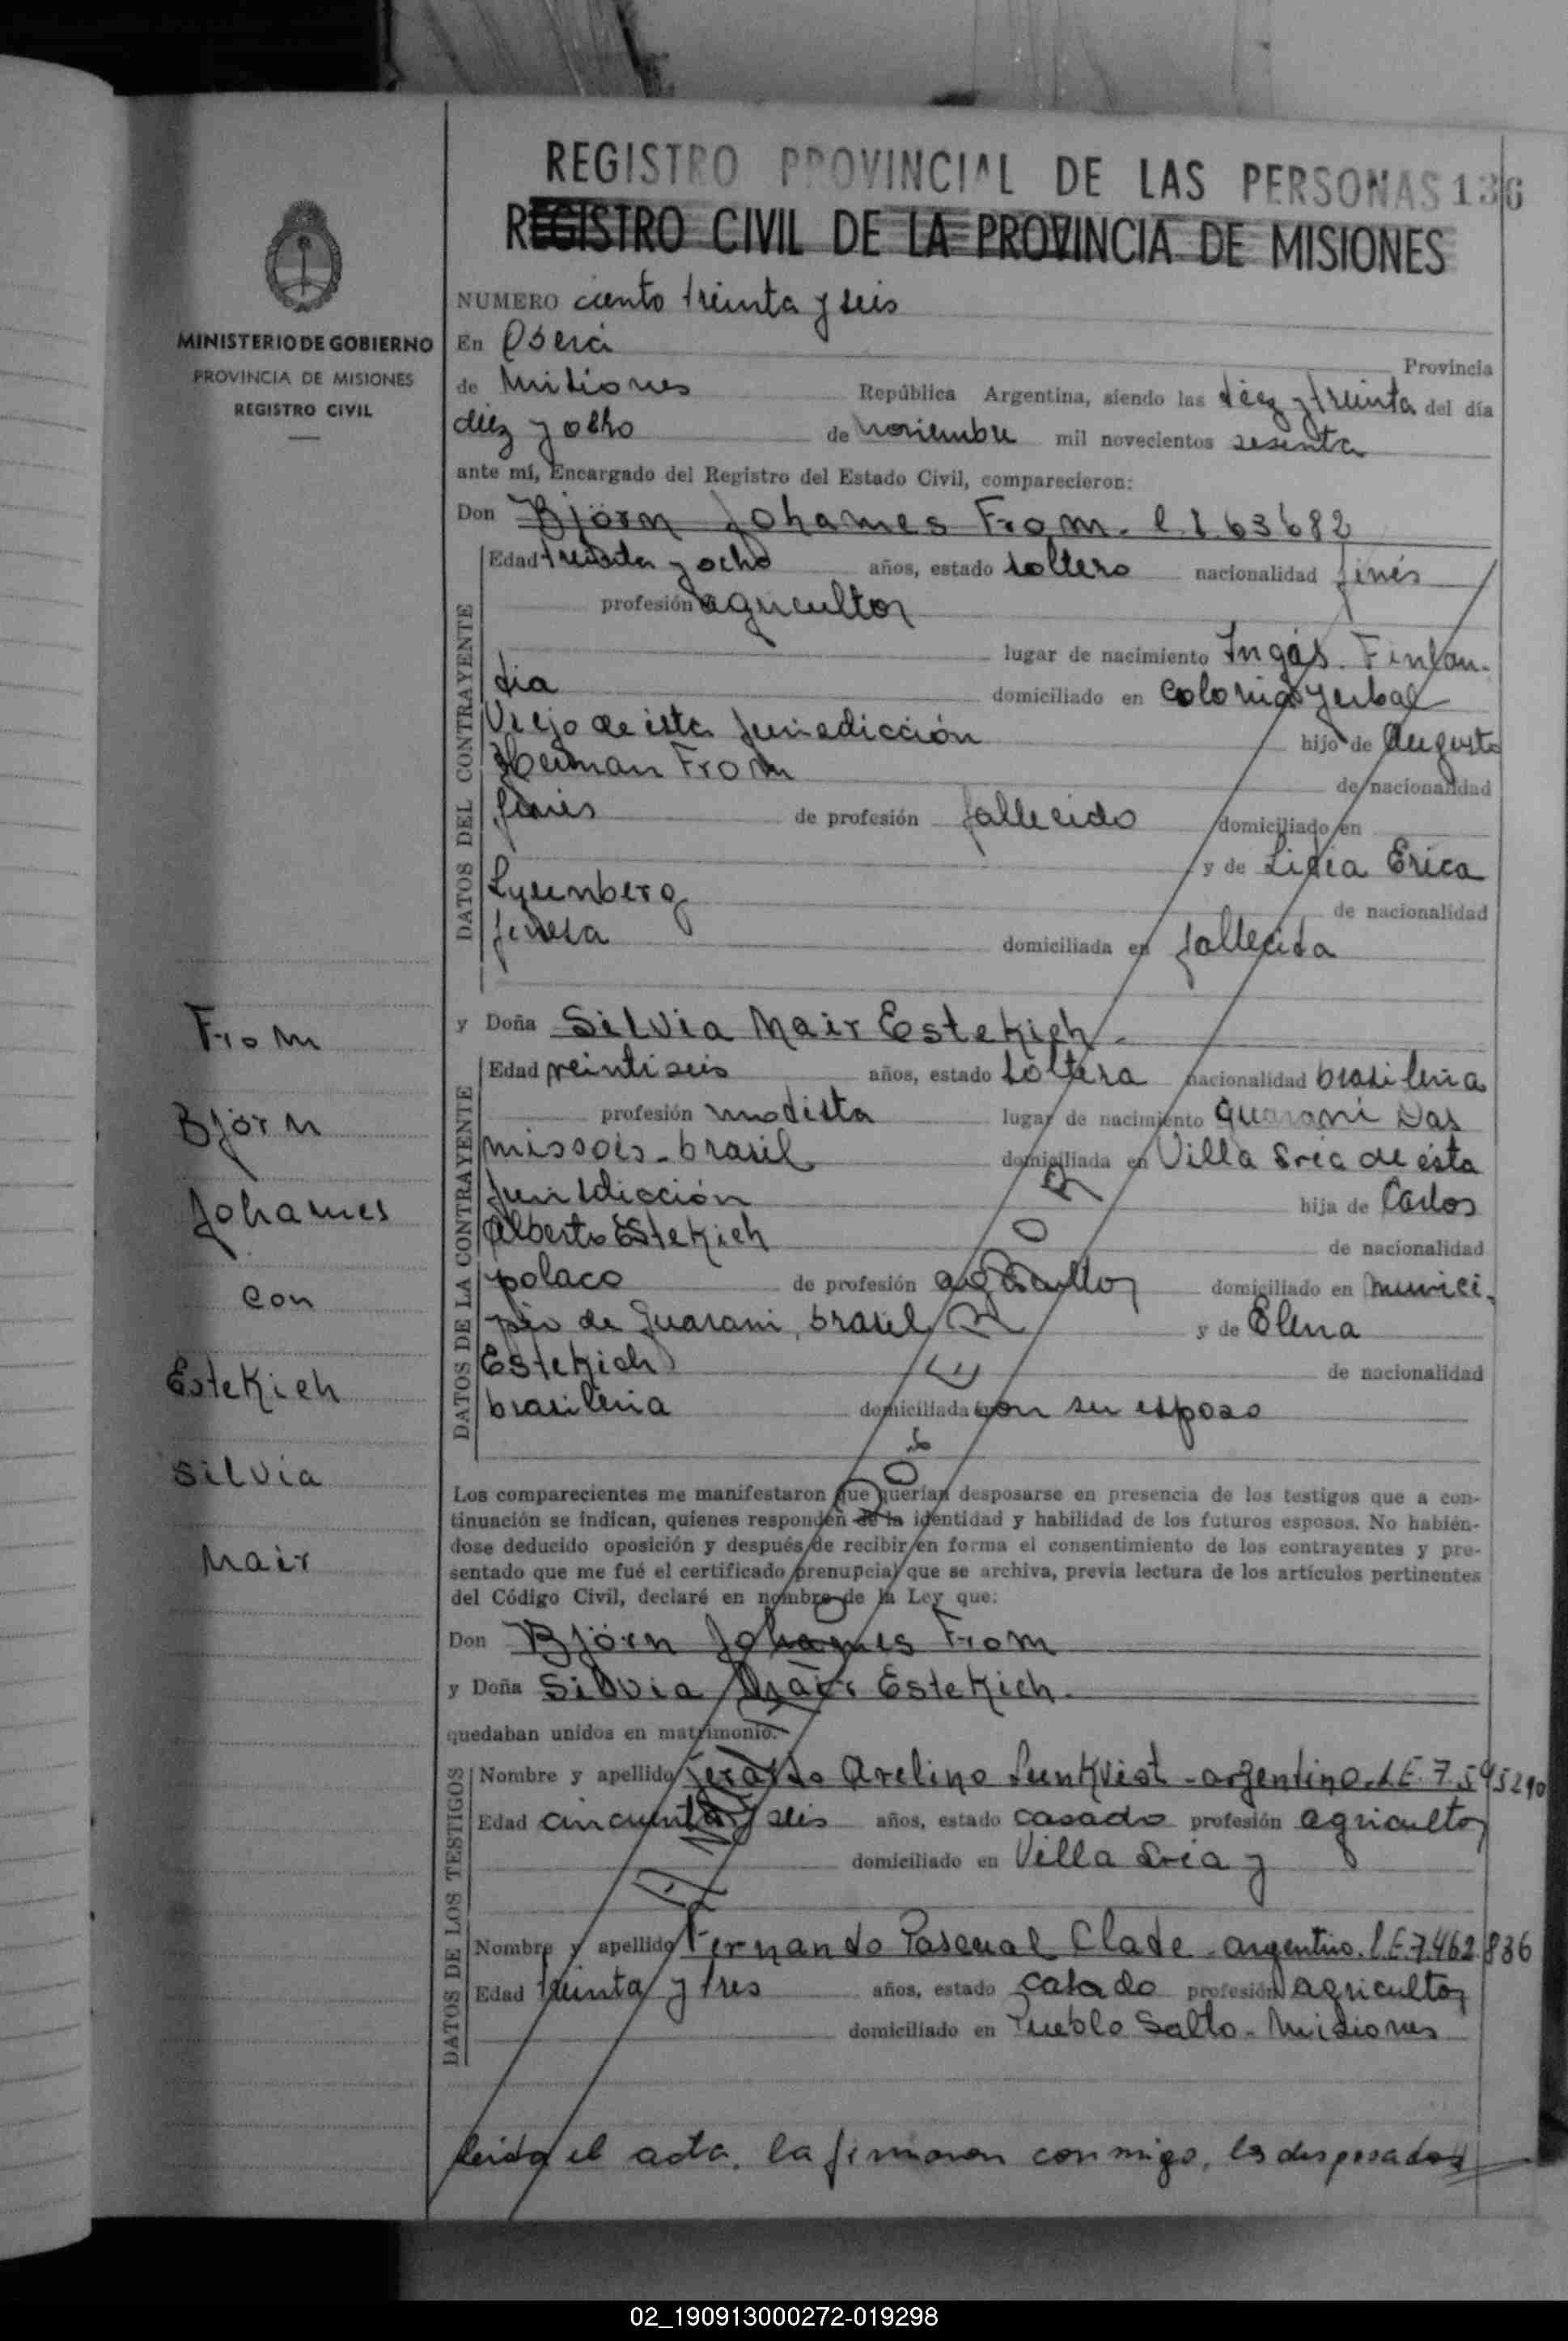 REGISTRO PROVINCIAL DE LAS PERSONAS 136
REGISTRO CIVIL DE LA PROVINCIA DE MISIONES
MINISTERIO DE GOBIERNO
PROVINCIA DE MISIONES
REGISTRO CIVIL
From
Björn
Johames
con
Estekich
Silvia
Mair
NUMERO ciento treinta y seis
En Oberá Provincia
de Misiones República Argentina, siendo las diez y treinta del día
diez y ocho de noviembre mil novecientos sesenta
ante mí, Encargado del Registro del Estado Civil, comparecieron:
Don Björn Johames From. C.I. 63682
DATOS DEL CONTRAYENTE
Edad treinta y ocho años, estado soltero nacionalidad finés
profesión agricultor
lugar de nacimiento Ingás. Finlan-
dia domiciliado en Colonia Yerbal
Viejo de ésta Jurisdicción hijo de Augusto
Herman From de nacionalidad
finés de profesión fallecido domiciliado en
y de Lidia Erica
de nacionalidad
finesa domiciliada en fallecida
y Doña Silvia Mair Estekich.
DATOS DE LA CONTRAYENTE
Edad veintiseis años, estado soltera nacionalidad brasileña
profesión modista lugar de nacimiento Guarani Das
missois - brasil domiciliada en Villa Svéa de ésta
Jurisdicción hija de Carlos
Alberto Estekich de nacionalidad
polaco de profesión agricultor domiciliado en munici-
pio de Guarani, brasil y de Elena
Estekich de nacionalidad
brasileña domiciliada con su esposo
Los comparecientes me manifestaron que querían desposarse en presencia de los testigos que a con-
tinuación se indican, quienes responden de la identidad y habilidad de los futuros esposos. No habién-
dose deducido oposición y después de recibir en forma el consentimiento de los contrayentes y pre-
sentado que me fué el certificado prenupcial que se archiva, previa lectura de los artículos pertinentes
del Código Civil, declaré en nombre de la Ley que:
Don Björn Johames From
y Doña Silvia Mair Estekich.
quedaban unidos en matrimonio.
DATOS DE LOS TESTIGOS
Nombre y apellido Avelino Sunkvist - argentino. L.E. 7.545290
Edad cincuenta y seis años, estado casado profesión agricultor
domiciliado en Villa Svéa y
Nombre y apellido Fernando Pascual Clade - argentino. L.E. 7.462.836
Edad treinta y tres años, estado casado profesión agricultor
domiciliado en Pueblo Salto - Misiones
leida el acta, la firmaron conmigo, los desposados
02_190913000272-019298